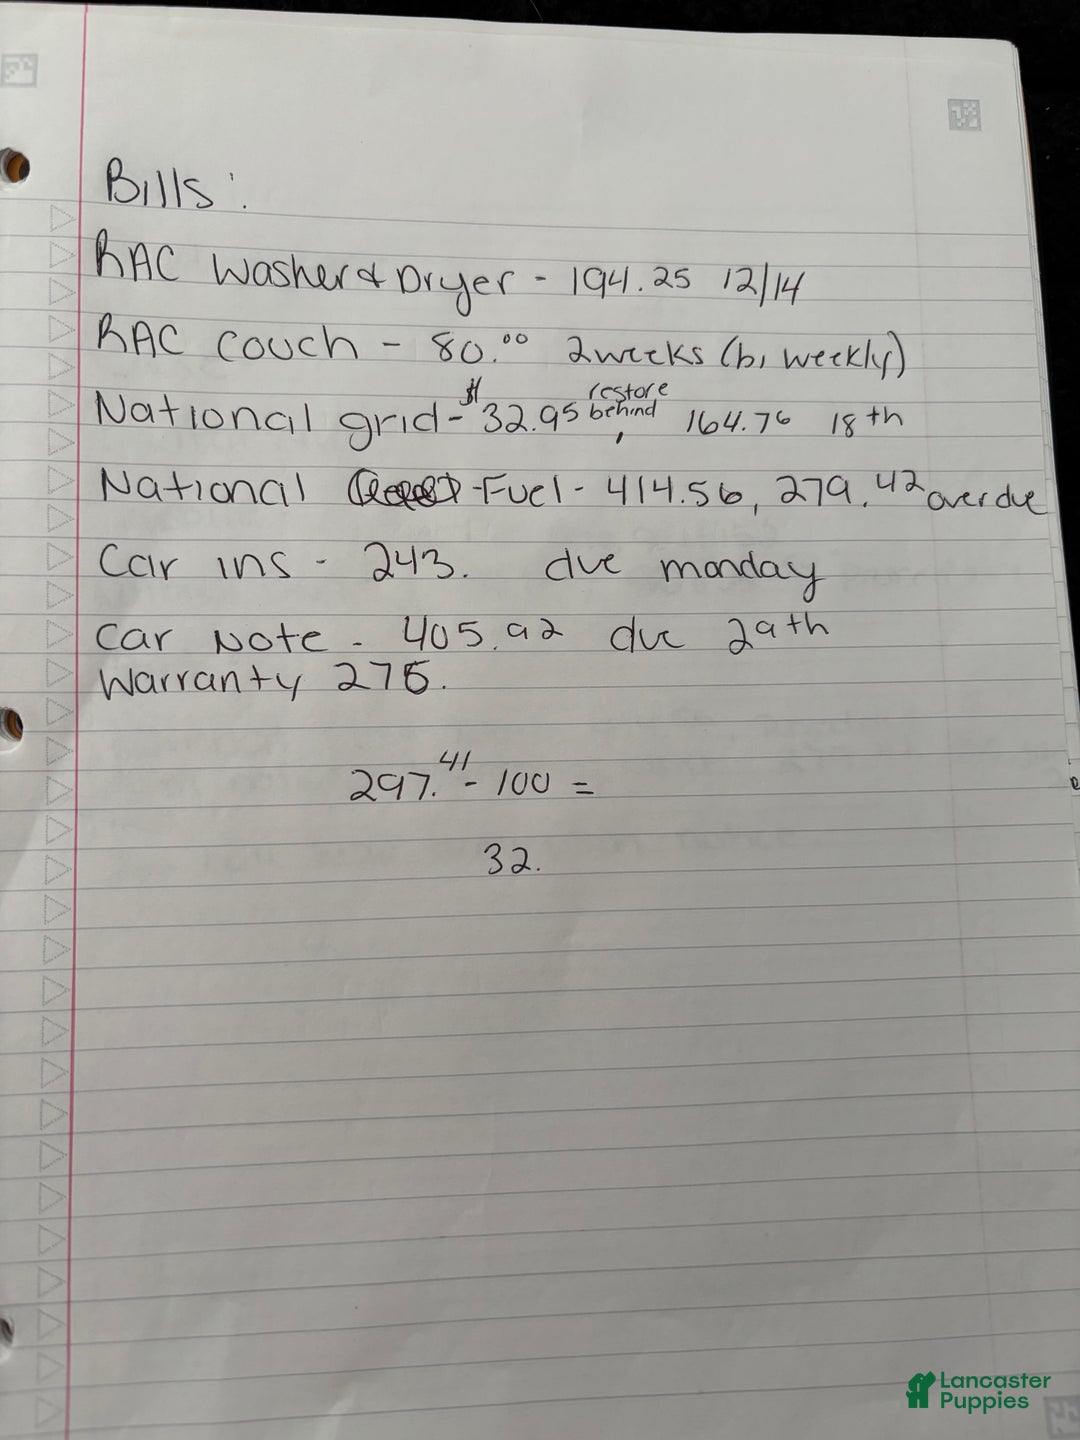 Bills:
RAC Washer & Dryer - 194.25 12/14
RAC couch - 80.00 2 weeks (bi weekly)
National grid - $32.95 restore behind, 164.76 18th
National Fuel - 414.56, 279.42 overdue
Car ins - 243. due monday
Car Note - 405.92 due 29th
Warranty 275.
297.41 - 100 =
32.
Lancaster
Puppies